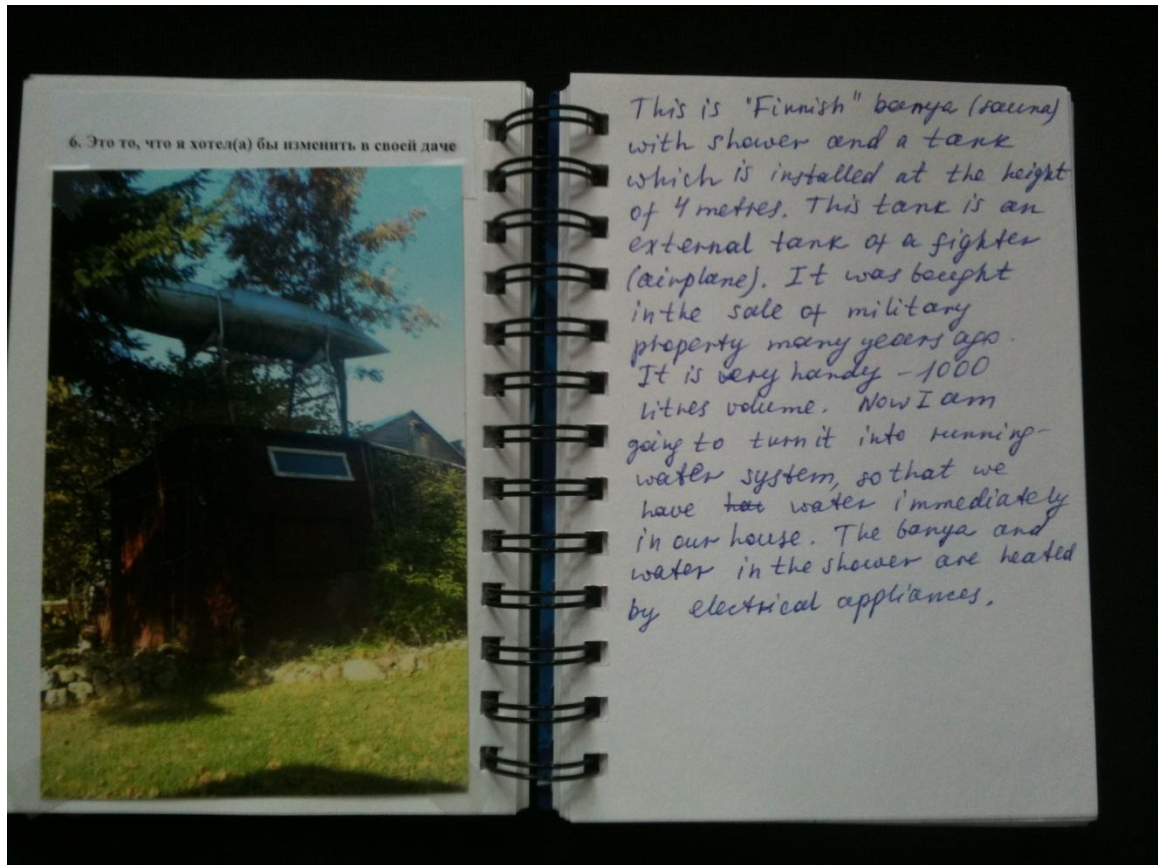 6. Это то, что я хотел(а) бы изменить в своей даче
This is "Finnish" banya (sauna)
with shower and a tank
which is installed at the height
of 4 metres. This tank is an
external tank of a fighter
(airplane). It was bought
in the sale of military
property many years ago.
It is very handy - 1000
litres volume. Now I am
going to turn it into running-
water system, so that we
have hot water immediately
in our house. The banya and
water in the shower are heated
by electrical appliances.